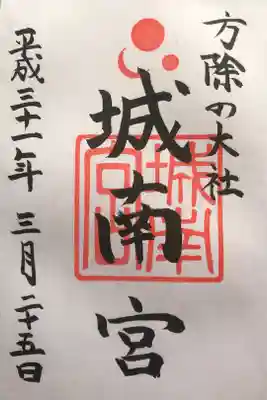 方除の大社
城南宮
城南宮
平成三十一年 三月二十五日